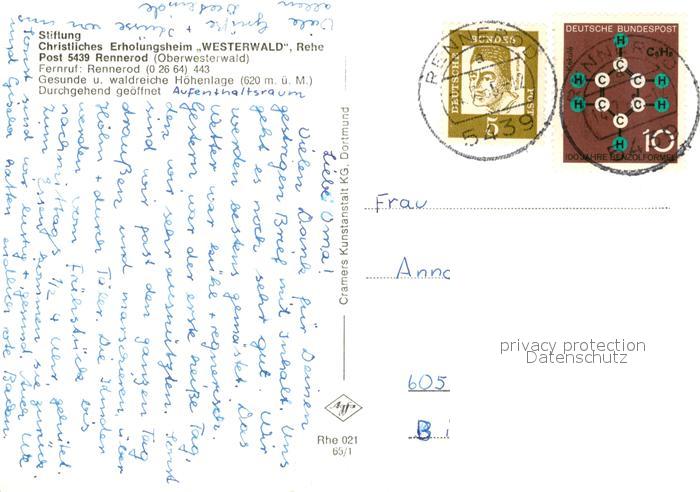 Stiftung
Christliches Erholungsheim „WESTERWALD", Rehe
Post 5439 Rennerod (Oberwesterwald)
Fernruf: Rennerod (0 26 64) 443
Gesunde u. waldreiche Höhenlage (620 m. ü. M.)
Durchgehend geöffnet Aufenthaltsraum
Liebe Oma!
Vielen Dank für Deinen
gestrigen Brief mit Inhalt. Uns
geht es noch sehr gut. Wir
werden bestens gemästet. Das
Wetter war kühl + regnerisch.
Gestern war der erste heiße Tag,
den wir sehr ausnützten. Sonst
sind wir fast den ganzen Tag
draußen und marschieren über
Höhen + durch Täler. Die Kinder
werden vom Frühstück bis
nachmittags 1/2 4 Uhr gehütet.
Zum Essen kommen sie zurück.
Sonst sind wir lustig + gesund. Auch Ute
und Gesa hatten endlich rote Backen.
Viele Grüße + Küsse von
allen
Cramers Kunstanstalt KG, Dortmund
Rhe 021
65/1
DEUTSCHE BUNDESPOST
5
DEUTSCHE BUNDESPOST
C₆H₆
H
C
C
C
C
C
C
H
H
H
H
H
10
100 JAHRE BENZOLFORMEL
RENNEROD
5439
RENNEROD
5439
Frau
Anna
605
B
privacy protection
Datenschutz